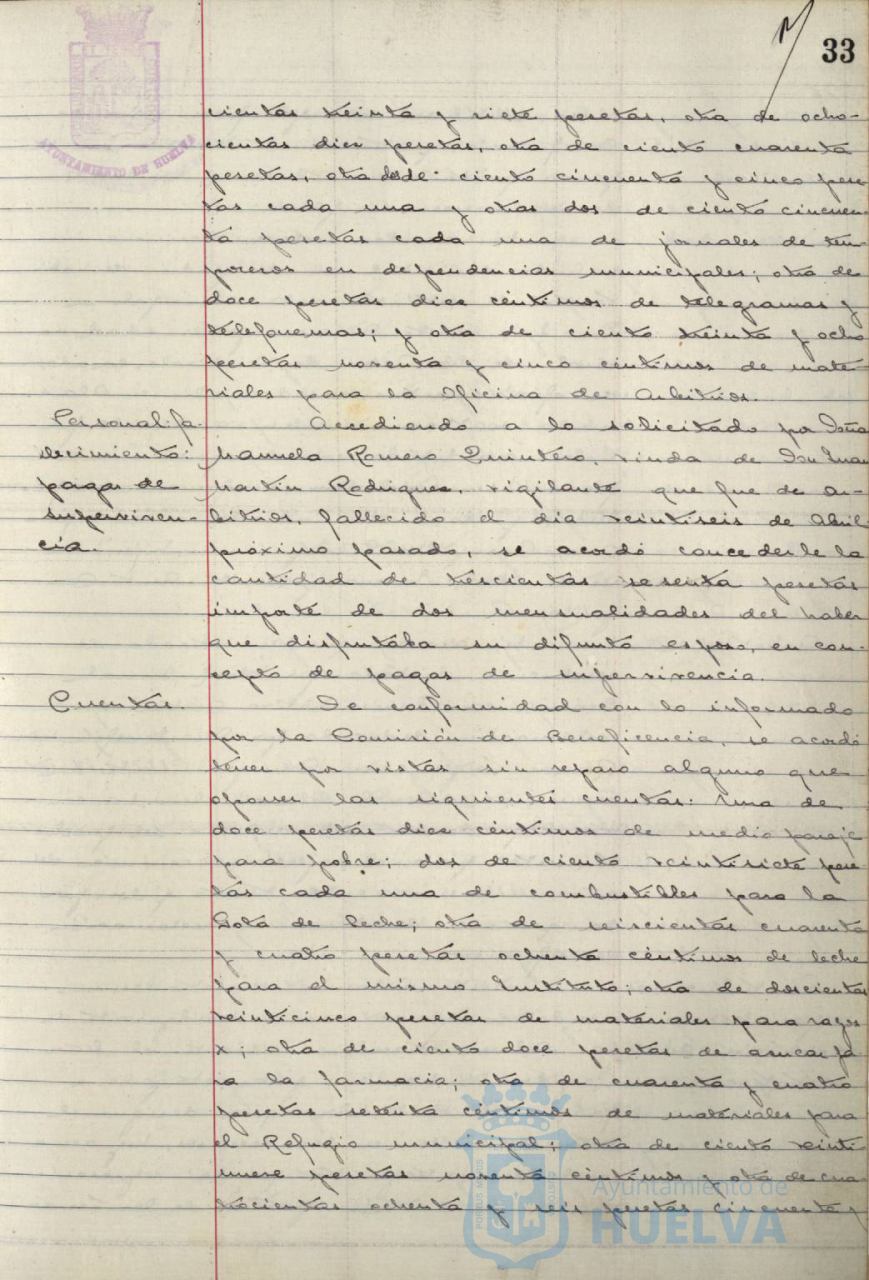 33
AYUNTAMIENTO DE HUELVA
cientas treinta y siete pesetas, otra de ocho-
cientas diez pesetas, otra de ciento cuarenta
pesetas, otra de ciento cincuenta y cinco pese
tas cada una y otras dos de ciento cincuen-
ta pesetas cada una de jornales de tem-
poreros en dependencias municipales; otra de
doce pesetas diez céntimos de telegramas y
telefonemas; y otra de ciento treinta y ocho
pesetas noventa y cinco céntimos de mate-
riales para la Oficina de Arbitrios.
Personal: fa-
llecimiento:
pagas de
supervivien-
cia.
Accediendo a lo solicitado por Doña
Manuela Romero Quintero, viuda de Don
Martin Rodriguez, vigilante que fue de ar-
bitrios, fallecido el dia veintiseis de Abril
próximo pasado, se acordó concederle la
cantidad de trescientas sesenta pesetas
importe de dos mensualidades del haber
que disfrutaba su difunto esposo, en con-
cepto de pagas de supervivencia.
Cuentas.
De conformidad con lo informado
por la Comisión de Beneficencia, se acordó
tener por vistas sin reparo alguno que
oponer las siguientes cuentas: Una de
doce pesetas diez céntimos de medio pasaje
para pobre; dos de ciento veintisiete pese
tas cada una de combustibles para la
Gota de leche; otra de seiscientas cuarenta
y cuatro pesetas ochenta céntimos de leche
para el mismo Instituto; otra de doscientas
veinticinco pesetas de materiales para rayos
x; otra de ciento doce pesetas de azucar pa
ra la farmacia; otra de cuarenta y cuatro
pesetas setenta céntimos de materiales para
el Refugio municipal; otra de ciento veinti
nueve pesetas noventa céntimos y otra de cua
trocientas ochenta y seis pesetas cincuenta y
Ayuntamiento de
HUELVA